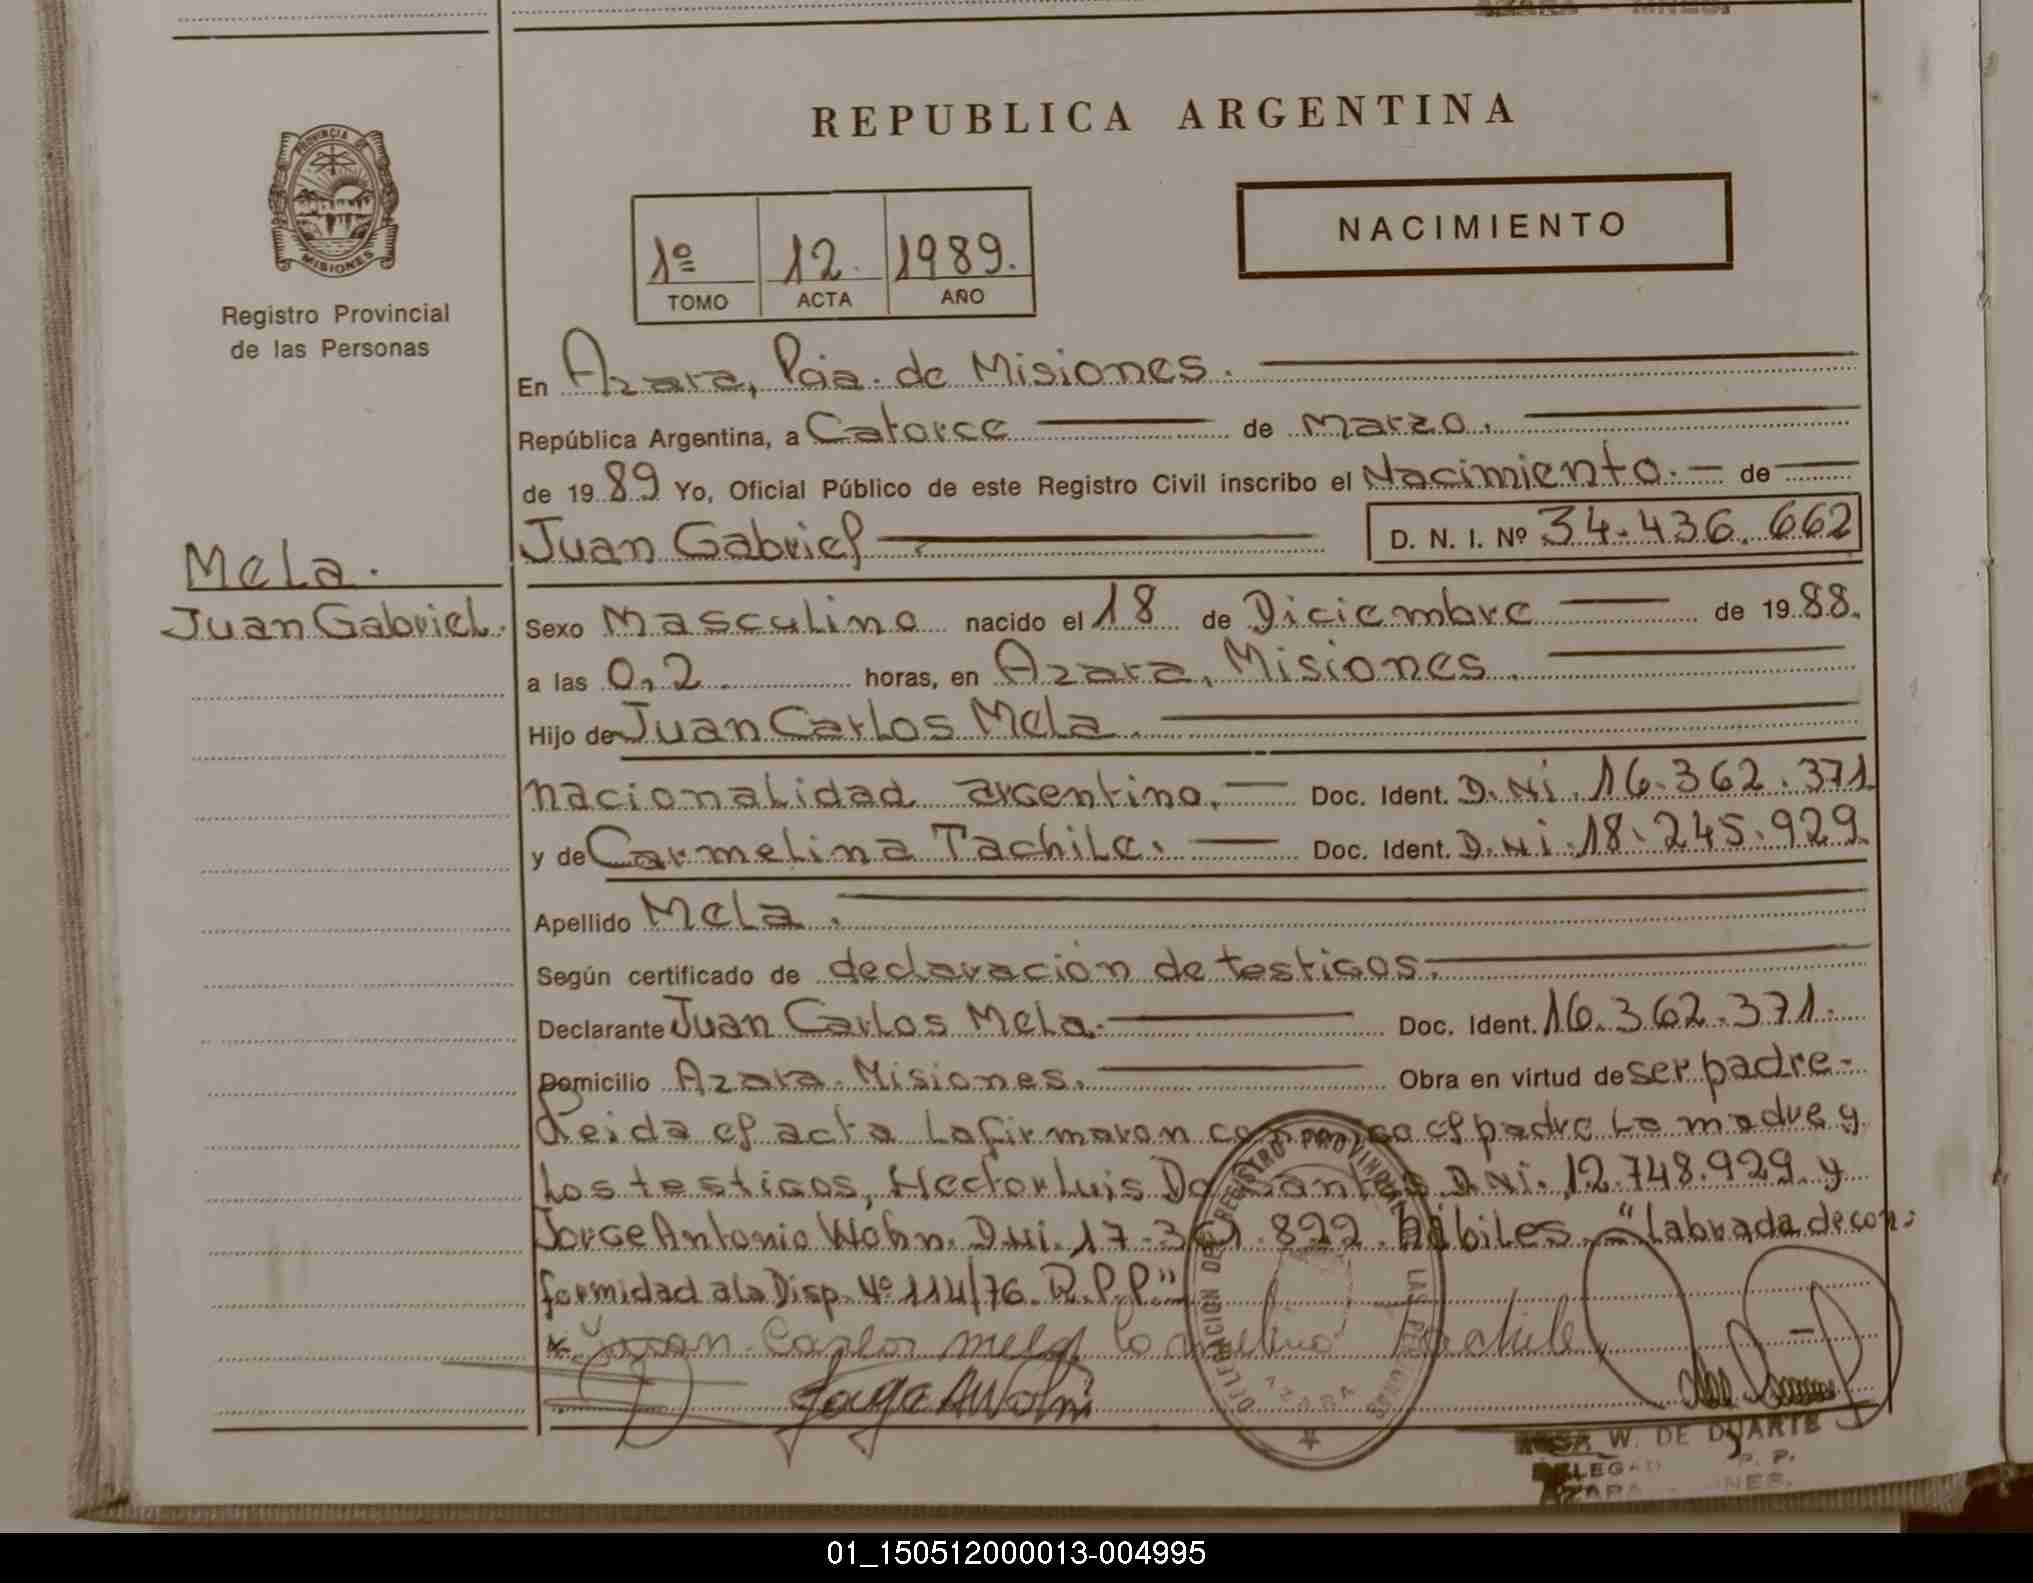 REPUBLICA ARGENTINA
PROVINCIA DE MISIONES
Registro Provincial
de las Personas
1º 12. 1989.
TOMO ACTA AÑO
NACIMIENTO
En Azara, Pcia. de Misiones.
República Argentina, a Catorce de Marzo.
de 1989 Yo, Oficial Público de este Registro Civil inscribo el Nacimiento. de
Juan Gabriel D. N. I. Nº 34.436.662
Mela.
Juan Gabriel.
Sexo Masculino nacido el 18 de Diciembre de 1988.
a las 0,2 horas, en Azara, Misiones.
Hijo de Juan Carlos Mela.
nacionalidad argentino. Doc. Ident. D.Ni. 16.362.371
y de Carmelina Tachile. Doc. Ident. D.Ni. 18.245.929
Apellido Mela.
Según certificado de declaración de testigos.
Declarante Juan Carlos Mela. Doc. Ident. 16.362.371.
Domicilio Azara. Misiones. Obra en virtud de ser padre-
Leida el acta la firmaron conmigo el padre la madre y
los testigos, Hector Luis Do Santos D.Ni. 12.748.929 y
Jorge Antonio Wohn. D.Ni. 17.3 .822. hábiles. "labrada de con-
formidad a la Disp. Nº 114/76. R.P.P"
Juan Carlos mela Carmelina Tachile
Jorge A Wohn
DELEGACION DEL REGISTRO PROVINCIAL DE LAS PERSONAS
AZARA
ROSA W. DE DUARTE
DELEGAD P. P.
AZARA - MNES.
01_150512000013-004995